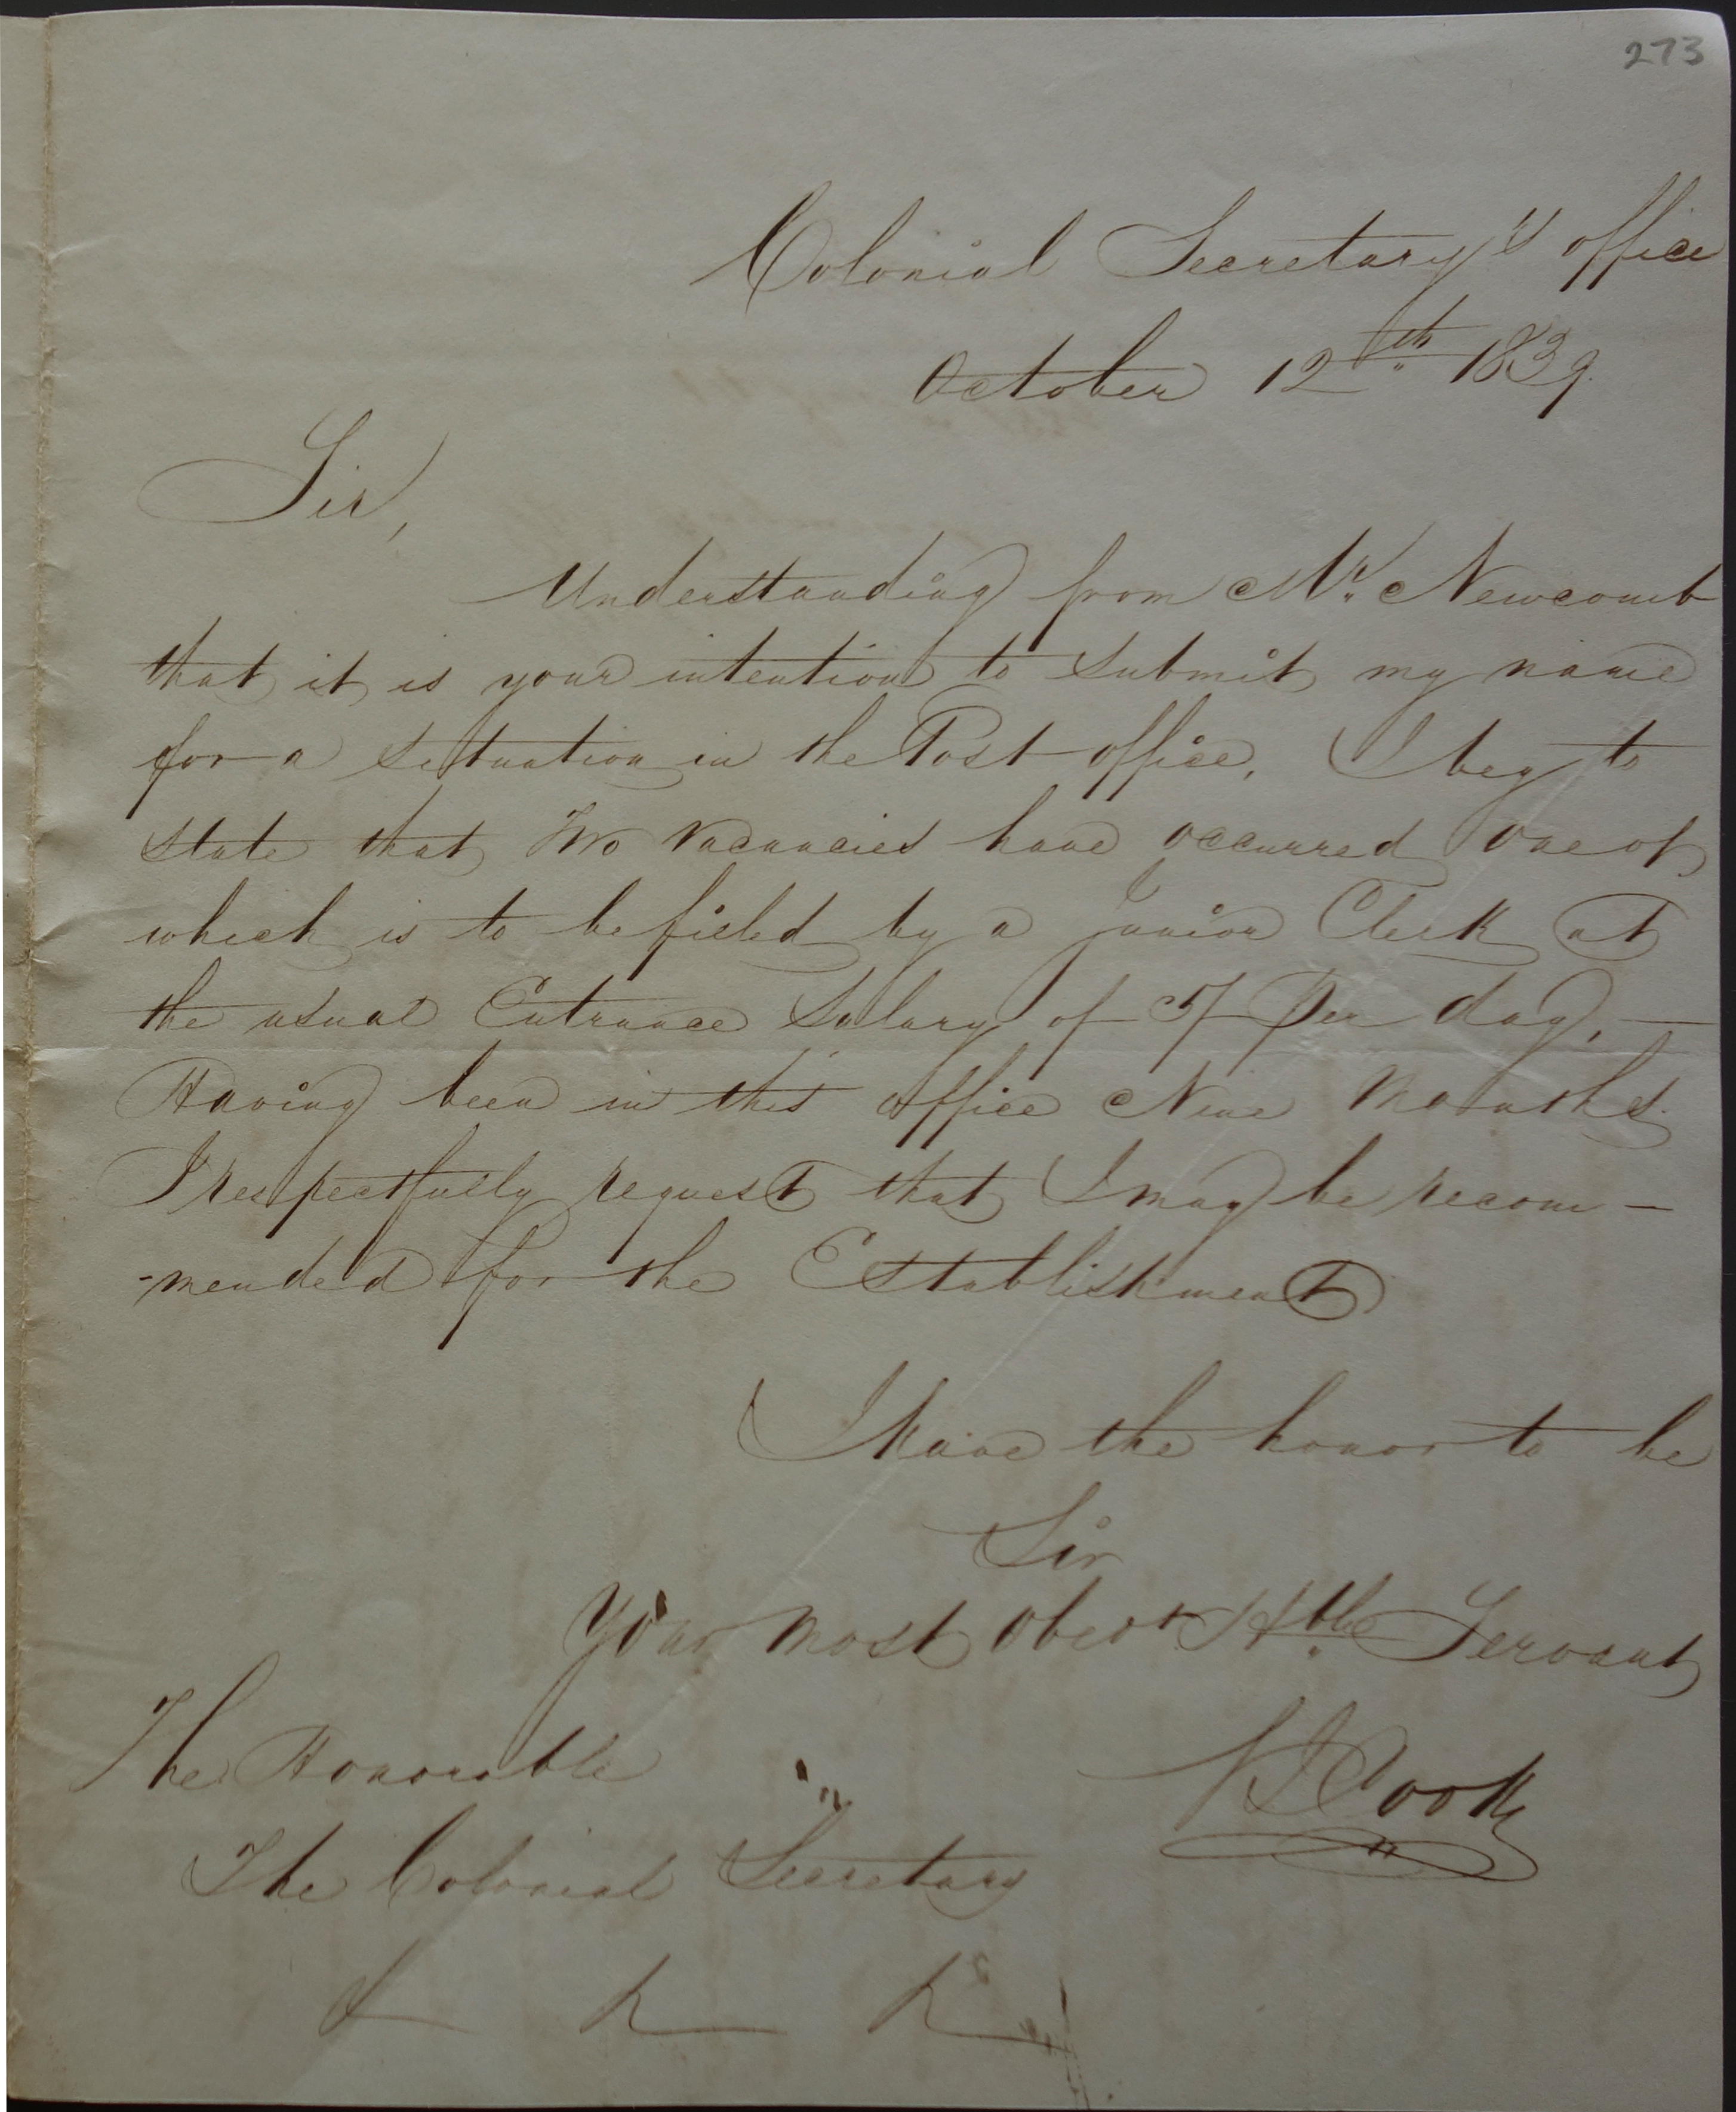 273
Colonial Secretary's office
October 12th 1839.
Sir,
Understanding from Mr. Newcomb
that it is your intention to submit my name
for a situation in the Post office, I beg to
state that Two vacancies have occurred one of
which is to be filled by a junior Clerk at
the usual Entrance Salary of 5/ Per day, —
Having been in this office Nine Months
I respectfully request that I may be recom -
-mended for the Establishment
I have the honor to be
Sir
Your most obedt Hble Servant
Cook
The Honorable
The Colonial Secretary